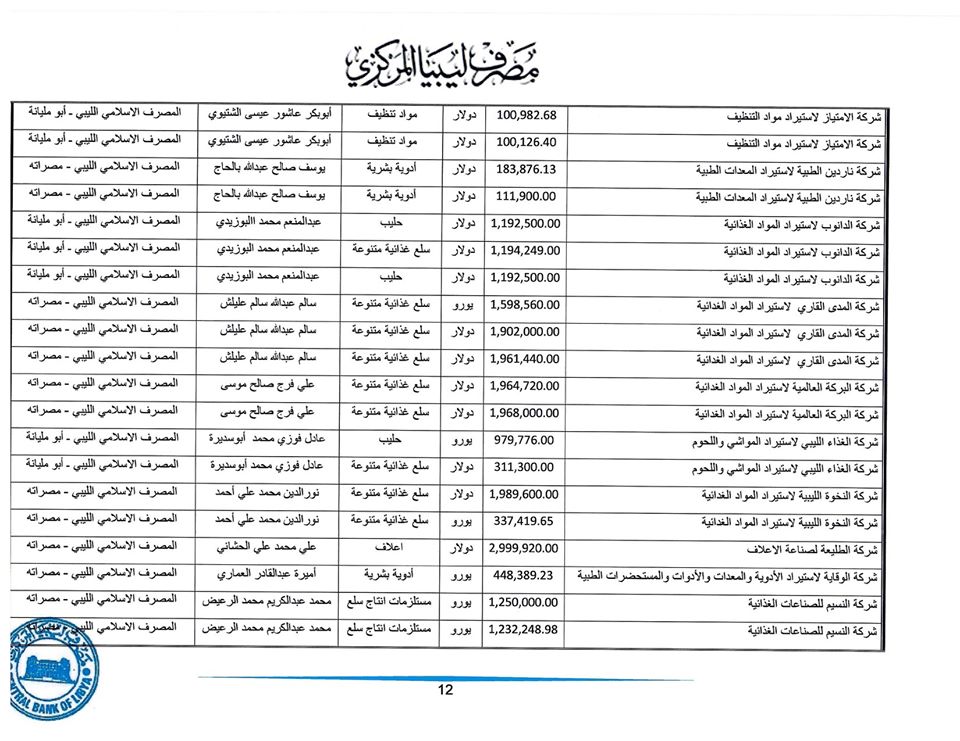 مصرف ليبيا المركزي
شركة الامتياز لاستيراد مواد التنظيف 100,982.68 دولار مواد تنظيف أبوبكر عاشور عيسى الشتيوي المصرف الاسلامي الليبي - أبو مليانة
شركة الامتياز لاستيراد مواد التنظيف 100,126.40 دولار مواد تنظيف أبوبكر عاشور عيسى الشتيوي المصرف الاسلامي الليبي - أبو مليانة
شركة ناردين الطبية لاستيراد المعدات الطبية 183,876.13 دولار أدوية بشرية يوسف صالح عبدالله بالحاج المصرف الاسلامي الليبي - مصراته
شركة ناردين الطبية لاستيراد المعدات الطبية 111,900.00 دولار أدوية بشرية يوسف صالح عبدالله بالحاج المصرف الاسلامي الليبي - مصراته
شركة الدانوب لاستيراد المواد الغذائية 1,192,500.00 دولار حليب عبدالمنعم محمد االبوزيدي المصرف الاسلامي الليبي - أبو مليانة
شركة الدانوب لاستيراد المواد الغذائية 1,194,249.00 دولار سلع غذائية متنوعة عبدالمنعم محمد البوزيدي المصرف الاسلامي الليبي - أبو مليانة
شركة الدانوب لاستيراد المواد الغذائية 1,192,500.00 دولار حليب عبدالمنعم محمد البوزيدي المصرف الاسلامي الليبي - أبو مليانة
شركة المدى القاري لاستيراد المواد الغدائية 1,598,560.00 يورو سلع غذائية متنوعة سالم عبدالله سالم عليلش المصرف الاسلامي الليبي - مصراته
شركة المدى القاري لاستيراد المواد الغدائية 1,902,000.00 دولار سلع غذائية متنوعة سالم عبدالله سالم عليلش المصرف الاسلامي الليبي - مصراته
شركة المدى القاري لاستيراد المواد الغدائية 1,961,440.00 دولار سلع غذائية متنوعة سالم عبدالله سالم عليلش المصرف الاسلامي الليبي - مصراته
شركة البركة العالمية لاستيراد المواد الغدائية 1,964,720.00 دولار سلع غذائية متنوعة علي فرج صالح موسى المصرف الاسلامي الليبي - مصراته
شركة البركة العالمية لاستيراد المواد الغدائية 1,968,000.00 دولار سلع غذائية متنوعة علي فرج صالح موسى المصرف الاسلامي الليبي - مصراته
شركة الغذاء الليبي لاستيراد المواشي واللحوم 979,776.00 يورو حليب عادل فوزي محمد أبوسديرة المصرف الاسلامي الليبي - أبو مليانة
شركة الغذاء الليبي لاستيراد المواشي واللحوم 311,300.00 دولار سلع غذائية متنوعة عادل فوزي محمد أبوسديرة المصرف الاسلامي الليبي - أبو مليانة
شركة النخوة الليبية لاستيراد المواد الغدائية 1,989,600.00 دولار سلع غذائية متنوعة نورالدين محمد علي أحمد المصرف الاسلامي الليبي - مصراته
شركة النخوة الليبية لاستيراد المواد الغدائية 337,419.65 يورو سلع غذائية متنوعة نورالدين محمد علي أحمد المصرف الاسلامي الليبي - مصراته
شركة الطليعة لصناعة الاعلاف 2,999,920.00 دولار اعلاف علي محمد علي الحشاني المصرف الاسلامي الليبي - مصراته
شركة الوقاية لاستيراد الأدوية والمعدات والأدوات والمستحضرات الطبية 448,389.23 يورو أدوية بشرية أميرة عبدالقادر العماري المصرف الاسلامي الليبي - مصراته
شركة النسيم للصناعات الغذائية 1,250,000.00 يورو مستلزمات انتاج سلع محمد عبدالكريم محمد الرعيض المصرف الاسلامي الليبي - مصراته
شركة النسيم للصناعات الغذائية 1,232,248.98 يورو مستلزمات انتاج سلع محمد عبدالكريم محمد الرعيض المصرف الاسلامي الليبي - مصراته
12
CENTRAL BANK OF LIBYA